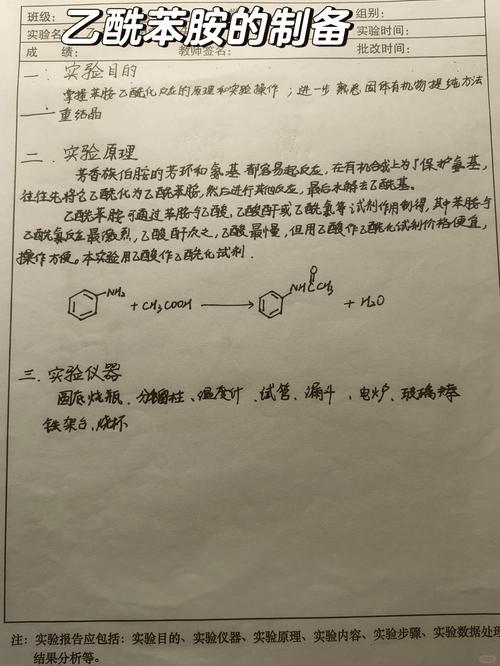 乙酰苯胺的制备
班级：
组别：
实验名
实验时间：
成 绩：
教师签名：
批改时间：
一、实验目的
掌握苯胺乙酰化反应的原理和实验操作；进一步熟悉固体有机物提纯方法
——重结晶
二、实验原理
芳香族伯胺的芳环和氨基都容易起反应，在有机合成上为了保护氨基，
往往先将它乙酰化为乙酰苯胺，然后进行其他反应，最后水解去乙酰基。
乙酰苯胺可通过苯胺与乙酸、乙酸酐或乙酰氯等试剂作用制得，其中苯胺与
乙酰氯反应最激烈，乙酸酐次之，乙酸最慢，但用乙酸作乙酰化试剂价格便宜，
操作方便。本实验用乙酸作乙酰化试剂.
NH₂ + CH₃COOH → NHCCH₃ + H₂O
O
三、实验仪器
圆底烧瓶、分馏柱、温度计、试管、漏斗、电炉、玻璃棒
铁架台、烧杯
注：实验报告应包括：实验目的、实验仪器、实验原理、实验内容、实验步骤、实验数据处理
结果分析等。